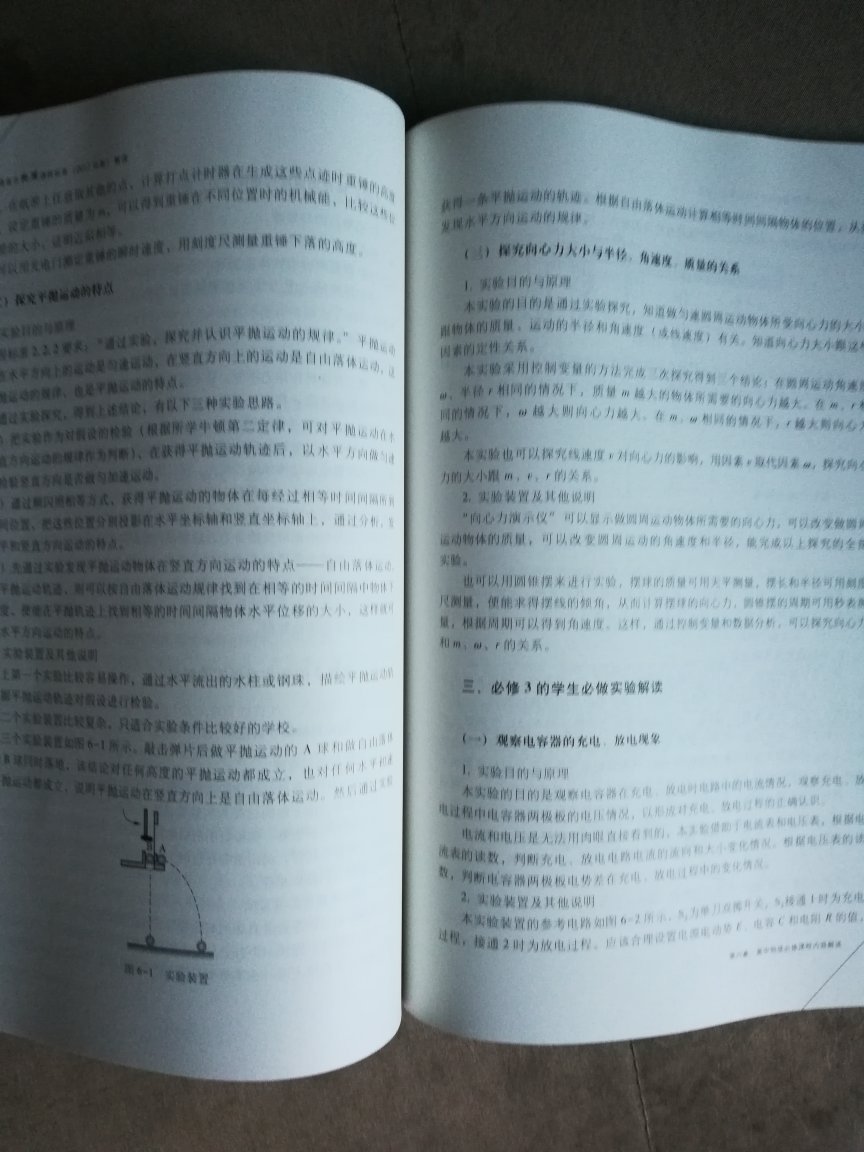 在纸带上任意取其他的点，计算打点计时器在生成这些点迹时重锤的高度
设定重锤的质量为m，可以得到重锤在不同位置时的机械能，比较这些
的大小，证明它们相等。
可以用光电门测定重锤的瞬时速度，用刻度尺测量重锤下落的高度。
）探究平抛运动的特点
实验目的与原理
标准2.2.2要求：“通过实验，探究并认识平抛运动的规律。”平抛运动
在水平方向上的运动是匀速运动，在竖直方向上的运动是自由落体运动，这
抛运动的规律，也是平抛运动的特点。
通过实验探究，得到上述结论，有以下三种实验思路。
）把实验作为对假设的检验（根据所学牛顿第二定律，可对平抛运动在水
直方向运动的规律作为判断）、在获得平抛运动轨迹后，以水平方向做匀速
验竖直方向是否做匀加速运动。
）通过频闪照相等方式，获得平抛运动的物体在每经过相等时间间隔所到
位置，把这些位置分别投影在水平坐标轴和竖直坐标轴上，通过分析，发
平和竖直方向运动的特点。
）先通过实验发现平抛运动物体在竖直方向运动的特点——自由落体运动，
平抛运动轨迹，则可以按自由落体运动规律找到在相等的时间间隔中物体下
度，便能在平抛轨迹上找到相等的时间间隔物体水平位移的大小，这样就可
水平方向运动的特点。
实验装置及其他说明
上第一个实验比较容易操作，通过水平流出的水柱或钢珠，描绘平抛运动轨
据平抛运动轨迹对假设进行检验。
二个实验装置比较复杂，只适合实验条件比较好的学校。
三个实验装置如图6-1所示。敲击弹片后做平抛运动的 A 球和做自由落体
B 球同时落地，该结论对任何高度的平抛运动都成立，也对任何水平初速
抛运动都成立，说明平抛运动在竖直方向上是自由落体运动。然后通过实验
A
图6-1 实验装置
获得一条平抛运动的轨迹。根据自由落体运动计算相等时间间隔物体的位置，从
发现水平方向运动的规律。
（三）探究向心力大小与半径、角速度、质量的关系
1. 实验目的与原理
本实验的目的是通过实验探究，知道做匀速圆周运动物体所受向心力的大小
跟物体的质量、运动的半径和角速度（或线速度）有关。知道向心力大小跟这些
因素的定性关系。
本实验采用控制变量的方法完成三次探究得到三个结论：在圆周运动角速度
ω、半径 r 相同的情况下，质量 m 越大的物体所需要的向心力越大。在 m、r 相
同的情况下，ω 越大则向心力越大。在 m、ω 相同的情况下，r 越大则向心力
越大。
本实验也可以探究线速度 v 对向心力的影响，用因素 v 取代因素 ω，探究向心
力的大小跟 m、v、r 的关系。
2. 实验装置及其他说明
“向心力演示仪”可以显示做圆周运动物体所需要的向心力，可以改变做圆周
运动物体的质量，可以改变圆周运动的角速度和半径，能完成以上探究的全部
实验。
也可以用圆锥摆来进行实验，摆球的质量可用天平测量，摆长和半径可用刻度
尺测量，便能求得摆线的倾角，从而计算摆球的向心力。圆锥摆的周期可用秒表测
量，根据周期可以得到角速度。这样，通过控制变量和数据分析，可以探究向心力
和 m、ω、r 的关系。
三、必修 3 的学生必做实验解读
（一）观察电容器的充电、放电现象
1. 实验目的与原理
本实验的目的是观察电容器在充电、放电时电路中的电流情况，观察充电、放
电过程中电容器两极板的电压情况，以形成对充电、放电过程的正确认识。
电流和电压是无法用肉眼直接看到的，本实验借助于电流表和电压表，根据电
流表的读数，判断充电、放电电路电流的流向和大小变化情况。根据电压表的读
数，判断电容器两极板电势差在充电、放电过程中的变化情况。
2. 实验装置及其他说明
本实验装置的参考电路如图6-2所示，S₁为单刀双掷开关，S₁接通1时为充电
过程，接通2时为放电过程。应该合理设置电源电动势 E、电容 C 和电阻 R 的值，
第六章 高中物理必修课程内容解读